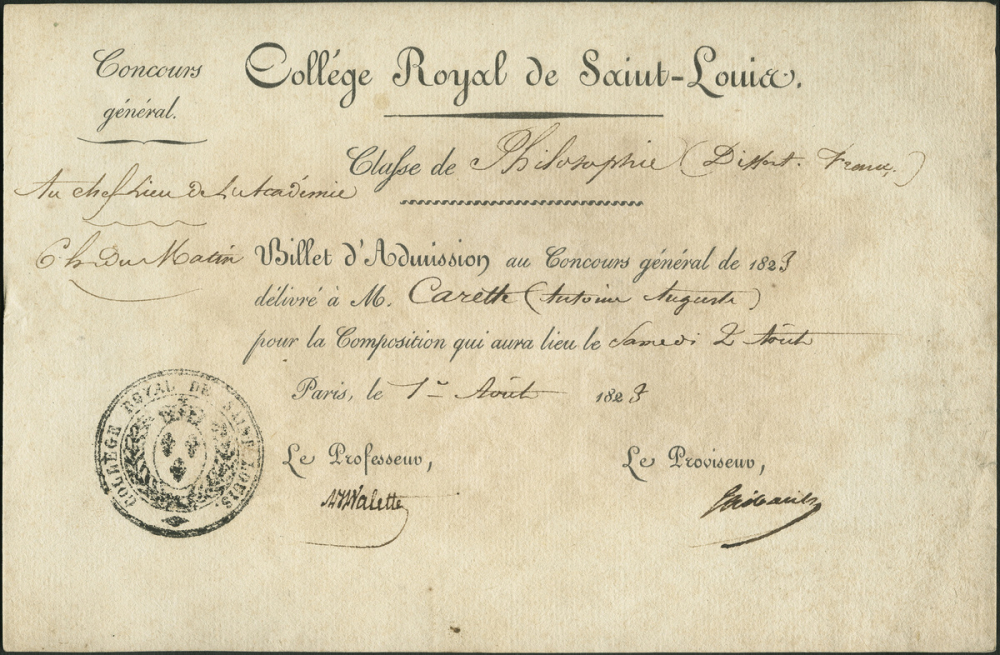 Concours
général.
Collége Royal de Saint-Louis.
Classe de Philosophie (Dissert. Franç.)
Au chef Lieu de L'Académie
6 h. Du Matin
Billet d'Admission au Concours général de 1823
délivré à M. Carette (Antoine Auguste)
pour la Composition qui aura lieu le Samedi 2 Août
Paris, le 1er Août 1823
COLLÈGE ROYAL DE SAINT LOUIS.
Le Professeur,
Le Proviseur,
Valette